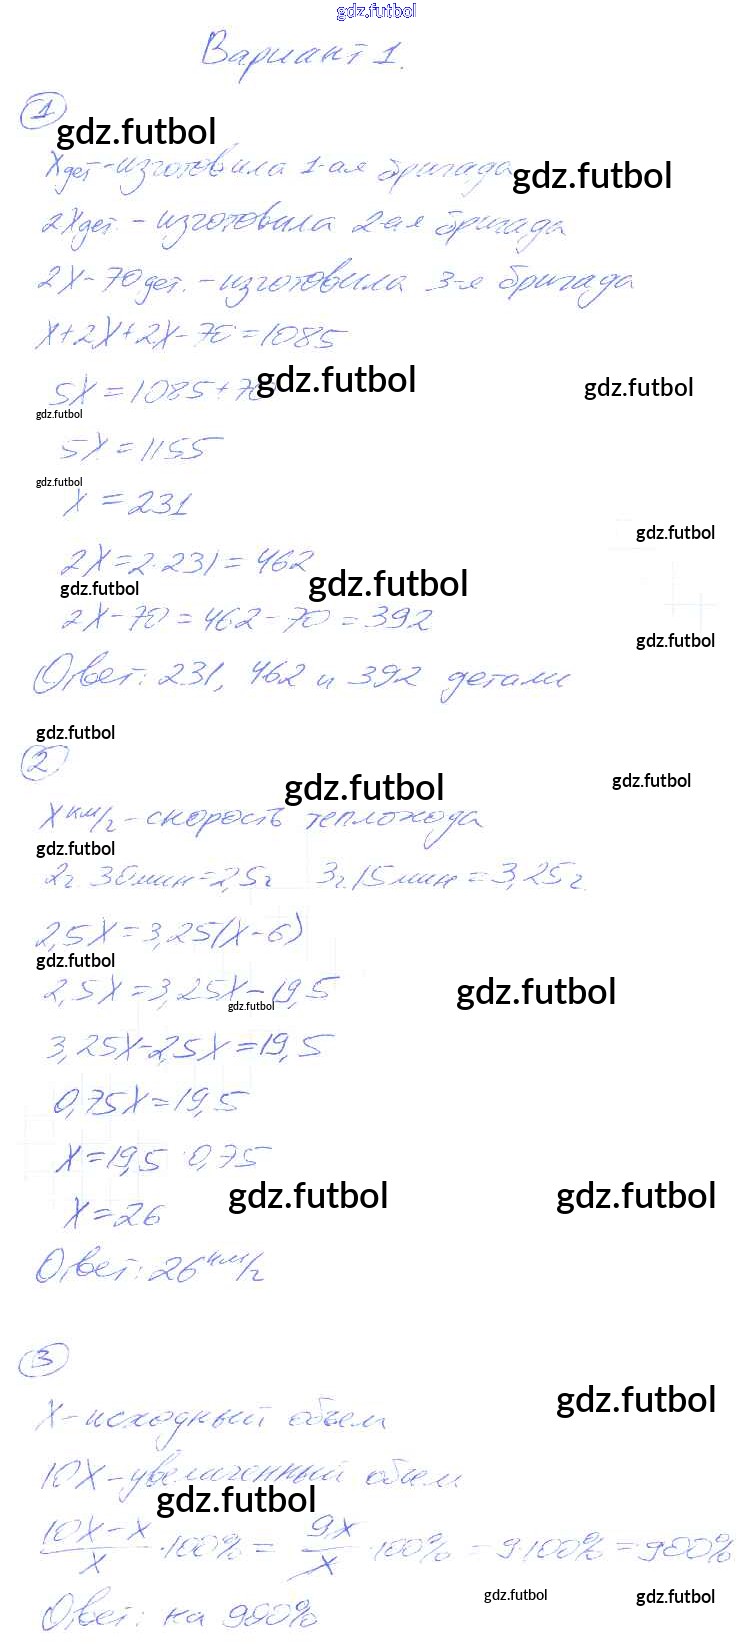 gdz.futbol
Вариант 1.
1
gdz.futbol
x дет - изготовила 1-ая бригада
gdz.futbol
2x дет. - изготовила 2-ая бригада
2x - 70 дет. - изготовила 3-я бригада
x + 2x + 2x - 70 = 1085
5x = 1085 + 70
gdz.futbol
gdz.futbol
gdz.futbol
5x = 1155
gdz.futbol
x = 231
gdz.futbol
2x = 2 · 231 = 462
gdz.futbol
gdz.futbol
2x - 70 = 462 - 70 = 392
gdz.futbol
Ответ: 231, 462 и 392 детали
gdz.futbol
2
gdz.futbol
gdz.futbol
x км/г - скорость теплохода
gdz.futbol
2г. 30 мин = 2,5г 3г. 15 мин = 3,25г
2,5x = 3,25(x - 6)
gdz.futbol
2,5x = 3,25x - 19,5
gdz.futbol
gdz.futbol
3,25x - 2,5x = 19,5
0,75x = 19,5
x = 19,5 : 0,75
gdz.futbol
gdz.futbol
x = 26
Ответ: 26 км/г
3
gdz.futbol
x - исходный объем
10x - увеличенный объем
gdz.futbol
10x - x / x · 100% = 9x / x · 100% = 9 · 100% = 900%
gdz.futbol
gdz.futbol
Ответ: на 900%